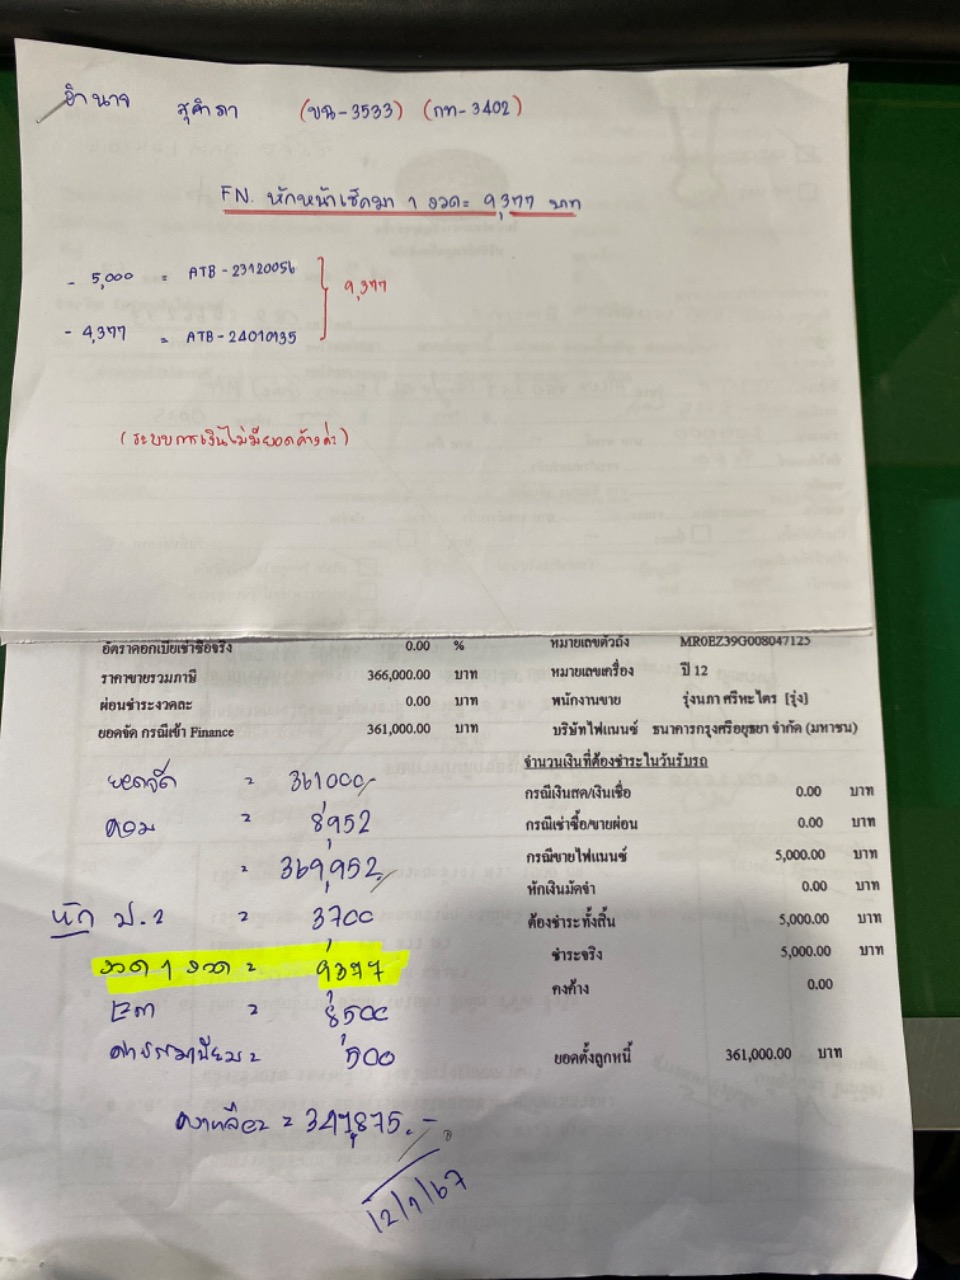 อำนาจ สุคำภา (ขฉ-3533) (กท-3402)
FN. หักหน้าเช็คมา 1 งวด = 9,377 บาท
- 5,000 = ATB-23120056 } 9,377
- 4,377 = ATB-24010135
(ระบบการเงินไม่มียอดค้างค่ะ)
อัตราดอกเบี้ยเช่าซื้อจริง 0.00 % หมายเลขตัวถัง MR0EZ39G008047125
ราคาขายรวมภาษี 366,000.00 บาท หมายเลขเครื่อง ปี 12
ผ่อนชำระงวดละ 0.00 บาท พนักงานขาย รุ่งนภา ศรีหะไตร [รุ่ง]
ยอดจัด กรณีเข้า Finance 361,000.00 บาท บริษัทไฟแนนซ์ ธนาคารกรุงศรีอยุธยา จำกัด (มหาชน)
จำนวนเงินที่ต้องชำระในวันรับรถ
ยอดจัด = 361000/- กรณีเงินสด/เงินเชื่อ 0.00 บาท
คอม = 8,952 กรณีเช่าซื้อ/ขายผ่อน 0.00 บาท
= 369,952 กรณีขายไฟแนนซ์ 5,000.00 บาท
หักเงินมัดจำ 0.00 บาท
หัก ป.2 = 3,700 ต้องชำระทั้งสิ้น 5,000.00 บาท
งวด 1 งวด = 9,377 ชำระจริง 5,000.00 บาท
= 8,500 คงค้าง 0.00
ค่าธรรมเนียม = 500 ยอดตั้งลูกหนี้ 361,000.00 บาท
คงเหลือ = 347,875.-
12/1/67